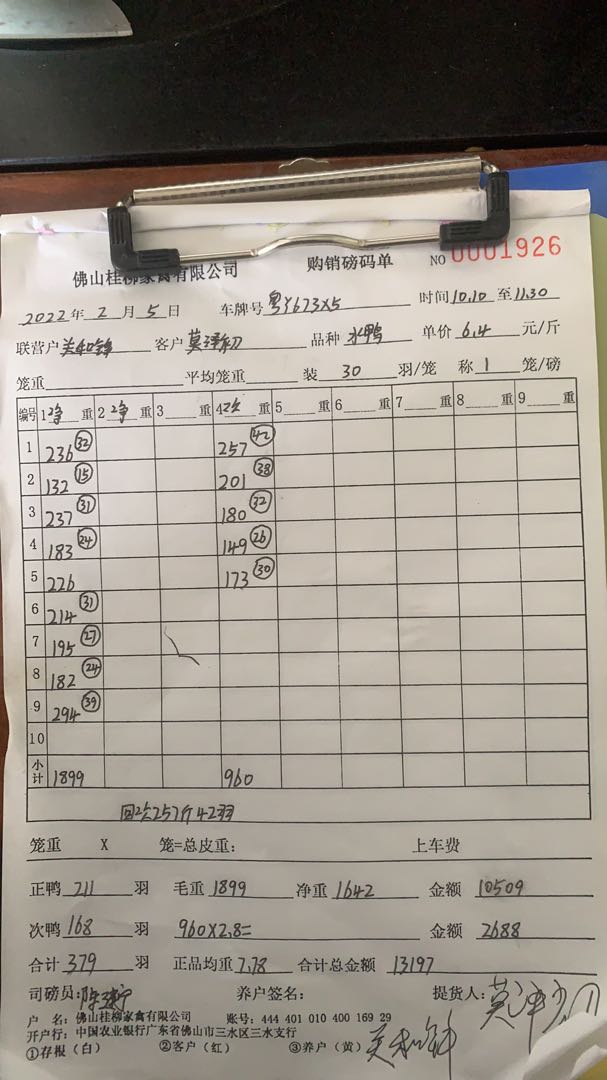 佛山桂柳家禽有限公司 购销磅码单 NO 0001926
2022年2月5日 车牌号 粤Y623X5 时间10.10至11.30
联营户 关和锋 客户 品种 水鸭 单价 6.4 元/斤
笼重 平均笼重 装 30 羽/笼 称 1 笼/磅
编号 1净重 2净重 3重 4次重 5重 6重 7重 8重 9重
1 236 32 257 42
2 132 15 201 38
3 237 31 180 32
4 183 24 149 26
5 226 173 30
6 214 31
7 195 27
8 182 24
9 294 39
10
小计 1899 960
回次257斤42羽
笼重 X 笼=总皮重: 上车费
正鸭 211 羽 毛重 1899 净重 1642 金额 10509
次鸭 168 羽 960X2.8= 金额 2688
合计 379 羽 正品均重 7.78 合计总金额 13197
司磅员: 养户签名: 提货人:
户 名: 佛山桂柳家禽有限公司 账号: 444 401 010 400 169 29
开户行: 中国农业银行广东省佛山市三水区三水支行
①存根(白) ②客户(红) ③养户(黄)